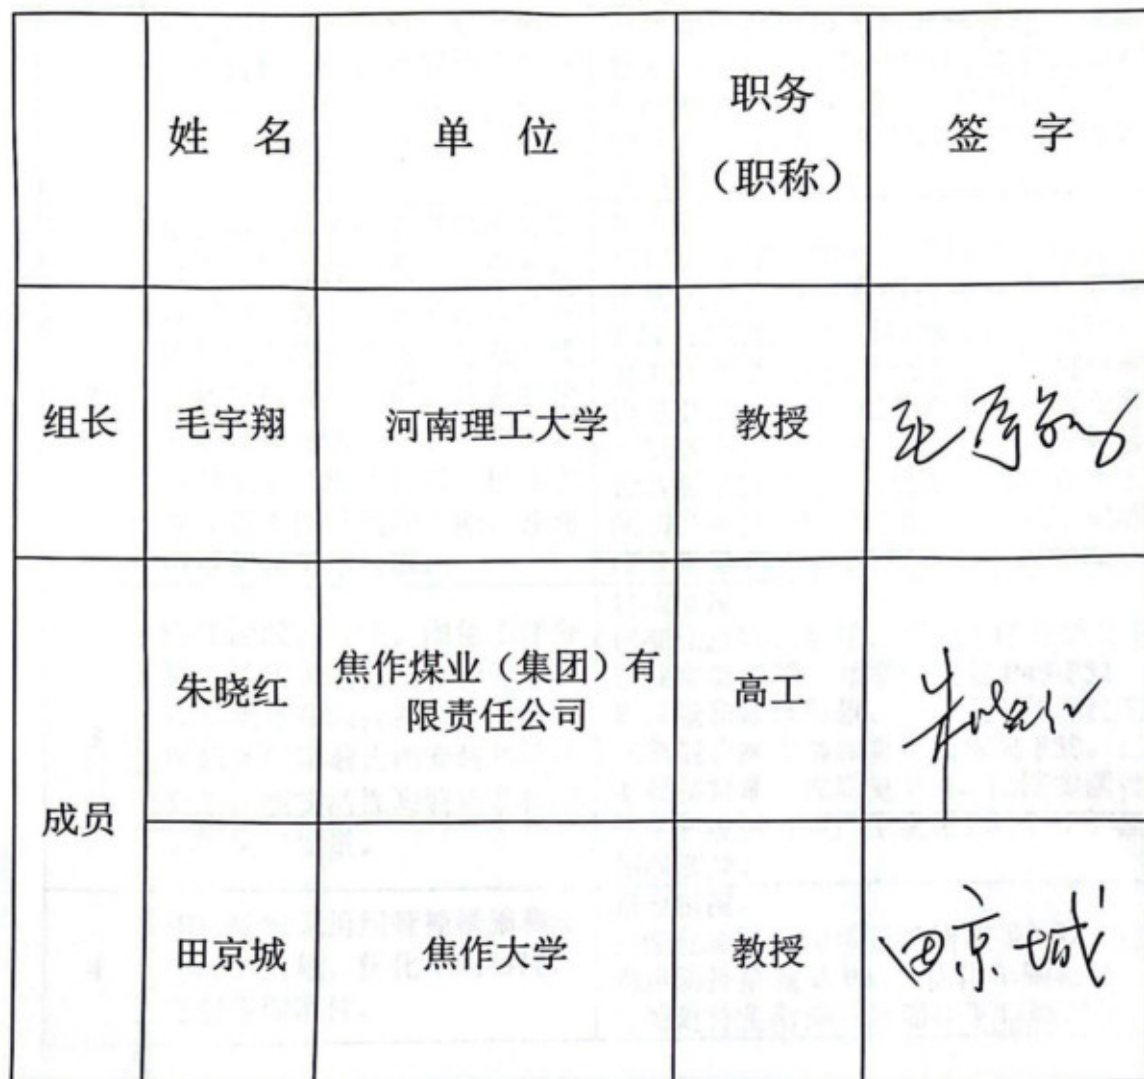 姓 名
单 位
职务
（职称）
签 字
组长
毛宇翔
河南理工大学
教授
毛宇翔
成员
朱晓红
焦作煤业（集团）有
限责任公司
高工
朱晓红
田京城
焦作大学
教授
田京城